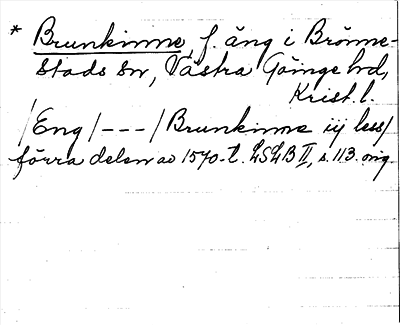 * Brunkinne, f. äng i Brönne-
stads sn, Västra Göinge hd,
Krist. l.
/Eng/---/Brunkinne iij less/
förra delen av 1570-t. LSLB II, s. 113. orig.